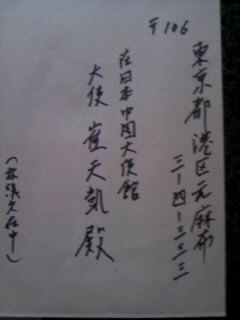 〒106
東京都港区元麻布
三-四-三三三
在日本中国大使館
大使 崔天凱殿
(抗議文在中)